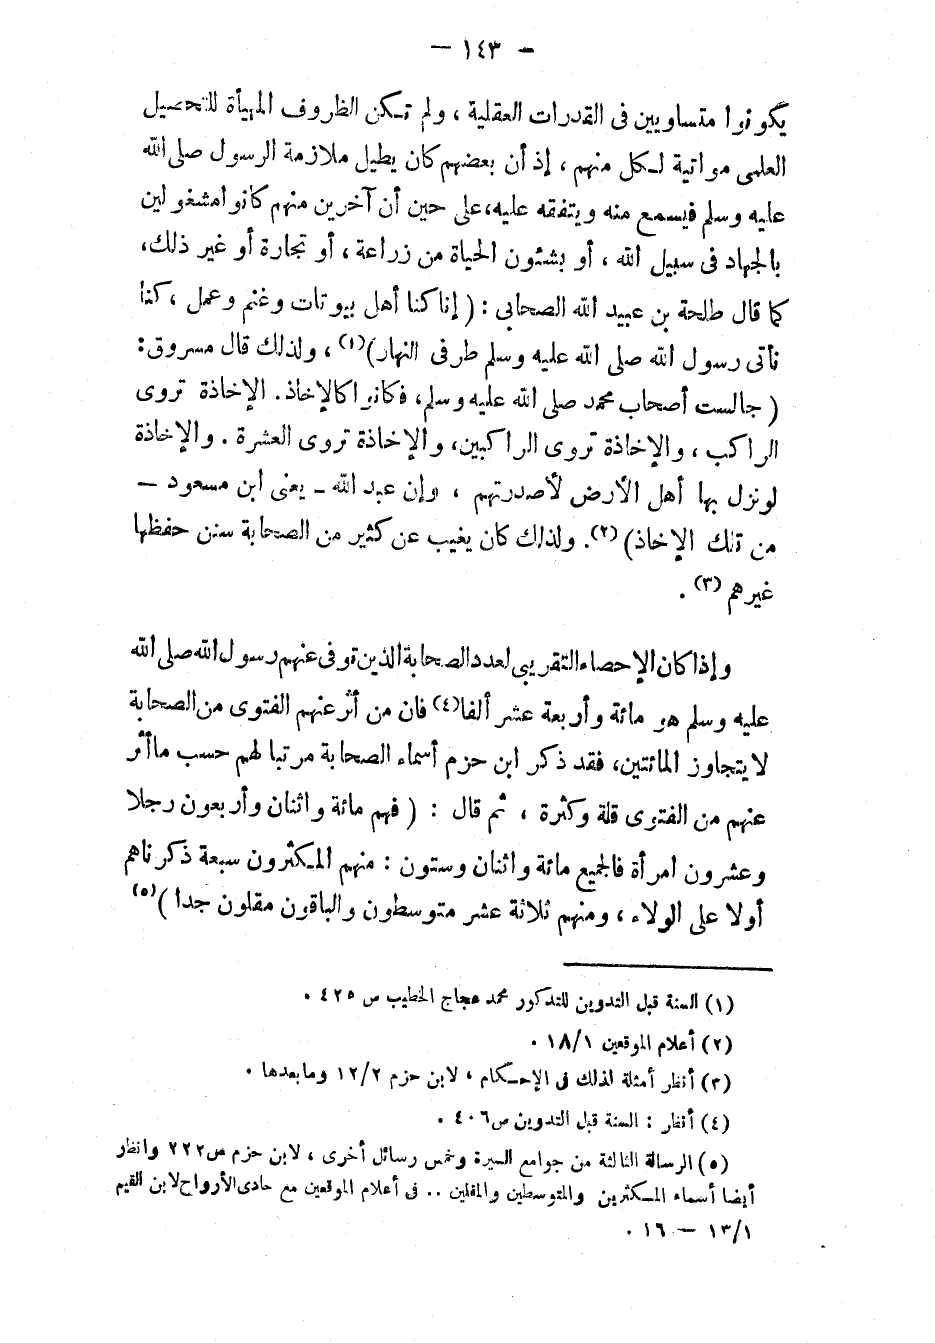 — ١٤٣ —
يكونوا متساويين فى القدرات العقلية ، ولم تكن الظروف المهيأة للتحصيل
العلمى مواتية لكل منهم ، إذ أن بعضهم كان يطيل ملازمة الرسول صلى الله
عليه وسلم فيسمع منه ويتفقه عليه، على حين أن آخرين منهم كانوا مشغولين
بالجهاد فى سبيل الله ، أو بشئون الحياة من زراعة ، أو تجارة أو غير ذلك،
كما قال طلحة بن عبيد الله الصحابى : ( إنا كنا أهل بيوتات وغنم وعمل ، كنا
نأتى رسول الله صلى الله عليه وسلم طرفى النهار)(١) ، ولذلك قال مسروق:
( جالست أصحاب محمد صلى الله عليه وسلم، فكانوا كالإخاذ. الإخاذة تروى
الراكب ، والإخاذة تروى الراكبين، والإخاذة تروى العشرة . والإخاذة
لو نزل بها أهل الأرض لأصدرتهم ، وإن عبد الله ـ يعنى ابن مسعود —
من تلك الإخاذ) (٢). ولذلك كان يغيب عن كثير من الصحابة سنن حفظها
غيرهم (٣) .
وإذا كان الإحصاء التقريبى لعدد الصحابة الذين توفى عنهم رسول الله صلى الله
عليه وسلم هو مائة وأربعة عشر ألفا(٤) فان من أثر عنهم الفتوى من الصحابة
لا يتجاوز المائتين، فقد ذكر ابن حزم أسماء الصحابة مرتبا لهم حسب ما أثر
عنهم من الفتوى قلة وكثرة ، ثم قال : ( فهم مائة واثنان وأربعون رجلا
وعشرون امرأة فالجميع مائة واثنان وستون : منهم المكثرون سبعة ذكرناهم
أولا على الولاء ، ومنهم ثلاثة عشر متوسطون والباقون مقلون جدا )(٥)
(١) السنة قبل التدوين للتدكور محمد عجاج الخطيب ص ٤٢٥ .
(٢) أعلام الموقعين ١٨/١ .
(٣) أنظر أمثلة لذلك فى الإحكام ، لابن حزم ١٢/٢ وما بعدها .
(٤) أنظر : السنة قبل التدوين ص ٤٠٦ .
(٥) الرسالة الثالثة من جوامع السيرة وخمس رسائل أخرى ، لابن حزم ص ٢٢٢ وانظر
أيضا أسماء المكثرين والمتوسطين والمقلين .. فى أعلام الموقعين مع حادى الأرواح لابن القيم
١٣/١ — ١٦ .